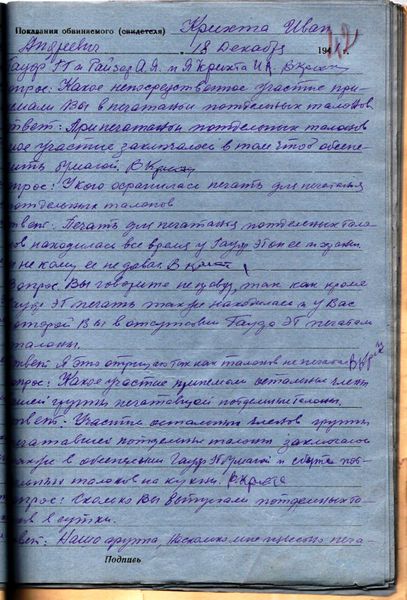 Показания обвиняемого (свидетеля) Крихта Иван
Андреевич „18 Декабря 194
Гаузр ЭП и Райзер А.Я. и Я Крихта И.А. В Крихта
прос: Какое непосредственное участие при-
мали Вы в печатаньи поддельных талонов.
твет: При печатаньи поддельных талонов
мое участие заключалося в том чтоб обеспе-
чить бумагой. В Крихта
прос: У кого хранилась печать для печатанья
поддельных талонов
вет: Печать для печатанья поддельных тало-
нов находилась все время у Гаузр ЭП он ее и хранил
и не кому ее не давал. В Крихта
Вопрос Вы говорите не правду, так как кроме
Гаузр ЭП печать также находилась и у Вас
которой Вы в отсутствии Гаузр ЭП печатали
талоны.
твет: Я это отрицаю так как талонов не печатал В Крихта
прос: Какое участие принимали остальные члены
вашей группы печатавшей поддельные талоны.
твет: Участие остальных членов группы
печатавшей поддельные талоны заключалось
также в обеспечении Гаузр ЭП бумагой и сбыта под-
дельных талонов на кухни. В Крихта
прос: Сколько Вы выпускали поддельных та-
нов в сутки.
вет: Наша группа, насколько мне известно печа-
Подпись